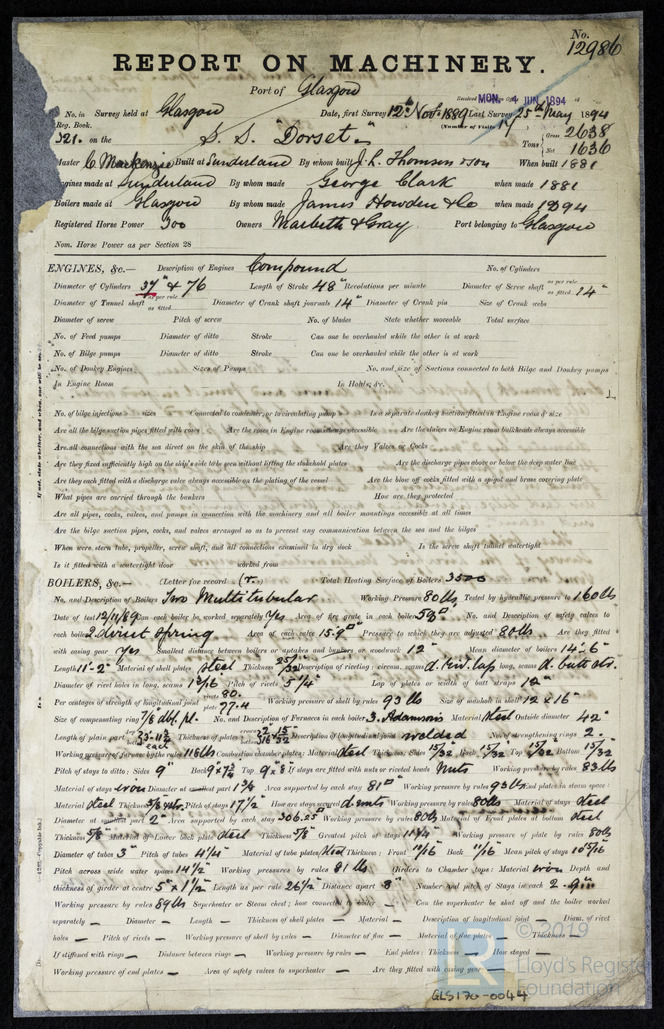 No. 12986
REPORT ON MACHINERY.
Port of Glasgow
Received MON. 4 JUN. 1894
No. in Survey held at Glasgow Date, first Survey 12th Novr 1889 Last Survey 25th May 1894
Reg. Book. (Number of Visits 14
321. on the S. S. "Dorset" Tons Gross 2638 Net 1636
Master C Mackenzie Built at Sunderland By whom built J. L. Thomson & son When built 1881
Engines made at Sunderland By whom made George Clark when made 1881
Boilers made at Glasgow By whom made James Howden & Co when made 1894
Registered Horse Power 300 Owners Macbeth & Gray Port belonging to Glasgow
Nom. Horse Power as per Section 28
ENGINES, &c.— Description of Engines Compound No. of Cylinders
Diameter of Cylinders 37" & 76 Length of Stroke 48" Revolutions per minute Diameter of Screw shaft as per rule as fitted 14"
Diameter of Tunnel shaft as per rule as fitted Diameter of Crank shaft journals 14" Diameter of Crank pin Size of Crank webs
Diameter of screw Pitch of screw No. of blades State whether moveable Total surface
No. of Feed pumps Diameter of ditto Stroke Can one be overhauled while the other is at work
No. of Bilge pumps Diameter of ditto Stroke Can one be overhauled while the other is at work
No. of Donkey Engines Sizes of Pumps No. and size of Suctions connected to both Bilge and Donkey pumps
In Engine Room In Holds, &c.
No. of bilge injections sizes Connected to condenser, or to circulating pump Is a separate donkey suction fitted in Engine room & size
Are all the bilge suction pipes fitted with roses Are the roses in Engine room always accessible Are the sluices on Engine room bulkheads always accessible
Are all connections with the sea direct on the skin of the ship Are they Valves or Cocks
Are they fixed sufficiently high on the ship's side to be seen without lifting the stokehold plates Are the discharge pipes above or below the deep water line
Are they each fitted with a discharge valve always accessible on the plating of the vessel Are the blow off cocks fitted with a spigot and brass covering plate
What pipes are carried through the bunkers How are they protected
Are all pipes, cocks, valves, and pumps in connection with the machinery and all boiler mountings accessible at all times
Are the bilge suction pipes, cocks, and valves arranged so as to prevent any communication between the sea and the bilges
When were stern tube, propeller, screw shaft, and all connections examined in dry dock Is the screw shaft tunnel watertight
Is it fitted with a watertight door worked from
BOILERS, &c.— (Letter for record (r.) Total Heating Surface of Boilers 3500
No. and Description of Boilers Two Multitubular Working Pressure 80 lbs Tested by hydraulic pressure to 160 lbs
Date of test 12/11/89 Can each boiler be worked separately Yes Area of fire grate in each boiler No. and Description of safety valves to
each boiler 2 direct Spring Area of each valve 15.9 Pressure to which they are adjusted 80 lbs Are they fitted
with easing gear Yes Smallest distance between boilers or uptakes and bunkers or woodwork 12" Mean diameter of boilers 14'-6"
Length 11'-2" Material of shell plates steel Thickness 25/32 Description of riveting: circum. seams d. riv. lap long. seams d. butt str.
Diameter of rivet holes in long. seams 13/16 Pitch of rivets 5 1/4" Lap of plates or width of butt straps 12"
Per centages of strength of longitudinal joint rivets 80. plate 77.4 Working pressure of shell by rules 93 lbs Size of manhole in shell 12 x 16"
Size of compensating ring 7/8 dbl. pl. No. and Description of Furnaces in each boiler 3. Adamsons Material steel Outside diameter 42"
Length of plain part Thickness of plates Description of longitudinal joint welded No. of strengthening rings 2.
Working pressure of furnace by the rules 116 lbs Combustion chamber plates: Material steel Thickness: Sides 15/32 Back 15/32 Top 15/32 Bottom 15/32
Pitch of stays to ditto: Sides 9" Back 9 x 7 3/4 Top 9 x 8 If stays are fitted with nuts or riveted heads Nuts Working pressure by rules 83 lbs
Material of stays iron Diameter at smallest part 1 3/4 Area supported by each stay 81 Working pressure by rules 93 lbs End plates in steam space:
Material steel Thickness Pitch of stays 17 1/2 How are stays secured d. nuts Working pressure by rules 80 lbs Material of stays steel
Diameter at smallest part 2" Area supported by each stay 306.25 Working pressure by rules 80 lbs Material of Front plates at bottom steel
Thickness 5/8" Material of Lower back plate steel Thickness 5/8" Greatest pitch of stays 11 3/4 Working pressure of plate by rules 80 lbs
Diameter of tubes 3" Pitch of tubes 4 1/4" Material of tube plates steel Thickness: Front 11/16 Back 11/16 Mean pitch of stays 10 5/16
Pitch across wide water spaces 14 1/2" Working pressures by rules 81 lbs Girders to Chamber tops: Material iron Depth and
thickness of girder at centre 5 x 1 1/2 Length as per rule 26 1/2 Distance apart 8" Number and pitch of Stays in each 2 - 9 in
Working pressure by rules 89 lbs Superheater or Steam chest; how connected to boiler Can the superheater be shut off and the boiler worked
separately — Diameter — Length — Thickness of shell plates — Material — Description of longitudinal joint — Diam. of rivet
holes — Pitch of rivets — Working pressure of shell by rules — Diameter of flue — Material of flue plates — Thickness —
If stiffened with rings — Distance between rings — Working pressure by rules — End plates: Thickness — How stayed —
Working pressure of end plates — Area of safety valves to superheater — Are they fitted with easing gear —
© 2019
Lloyd's Register
Foundation
GLS170-0044